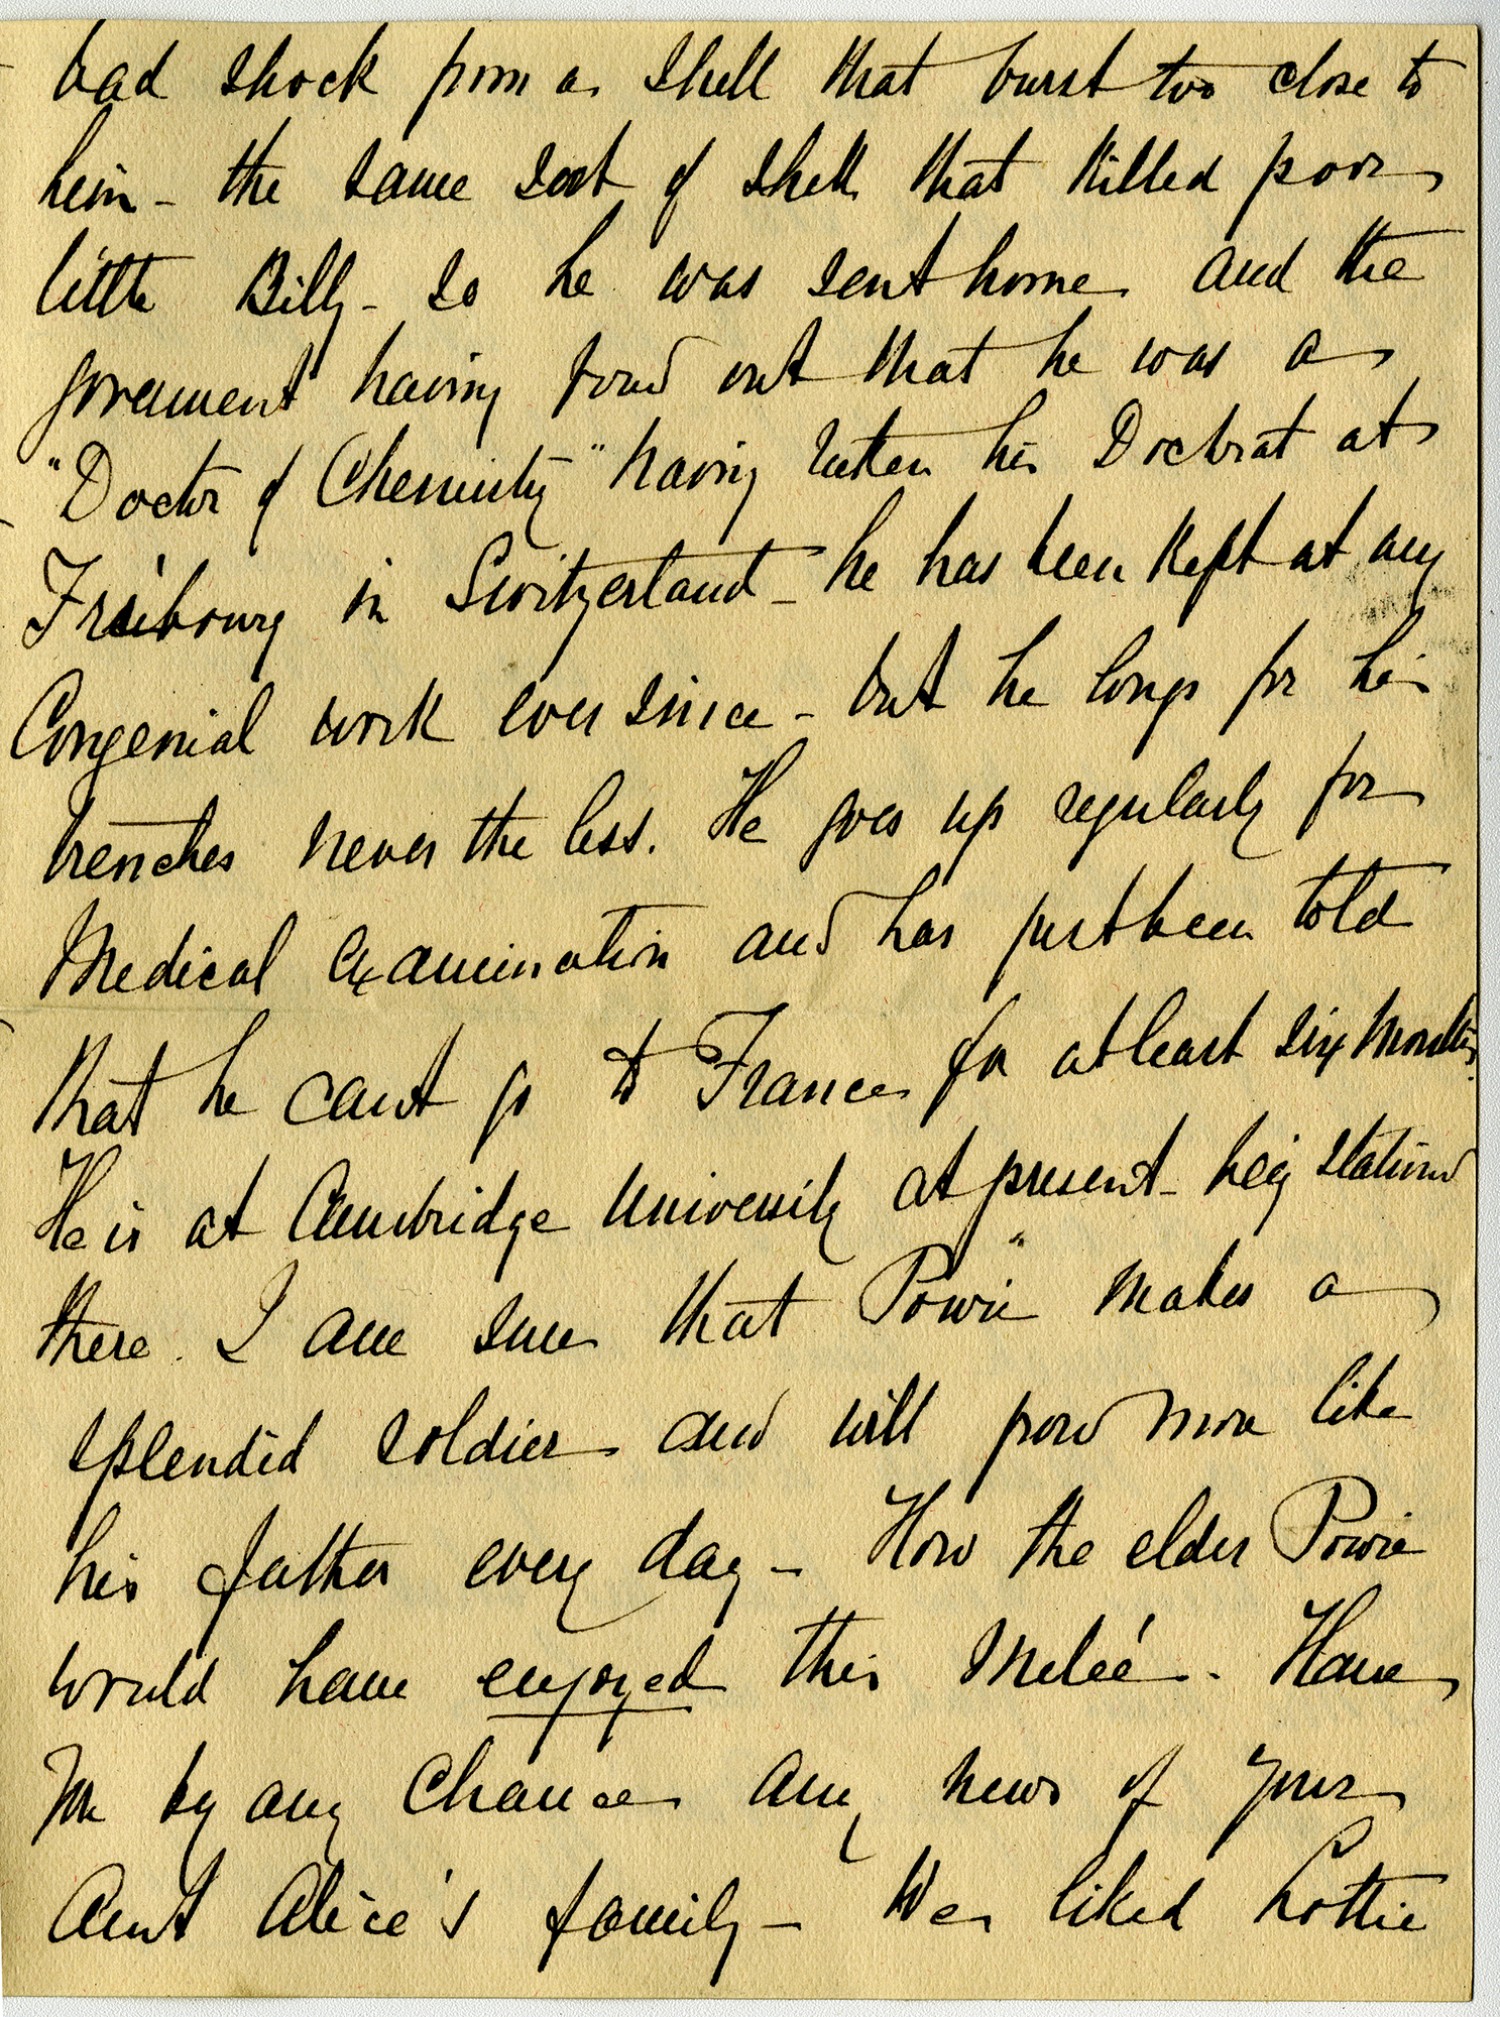 bad shock from a shell that burst too close to
him - the same sort of shell that killed poor
little Billy - so he was sent home and the
government having found out that he was a
"Doctor of Chemistry" having taken his Doctrat at
Freibourg in Switzerland - he has been kept at any
Congenial work ever since - but he longs for his
trenches never the less. He goes up regularly for
Medical examination and has just been told
that he cant go to France for at least six months.
He is at Cambridge University at present - being stationed
there. I am sure that "Powie" makes a
splendid soldier and will grow more like
his father every day - How the elder Powie
would have enjoyed this Meleé. Have
you by any chance any news of your
Aunt Alice's family - We liked Lottie